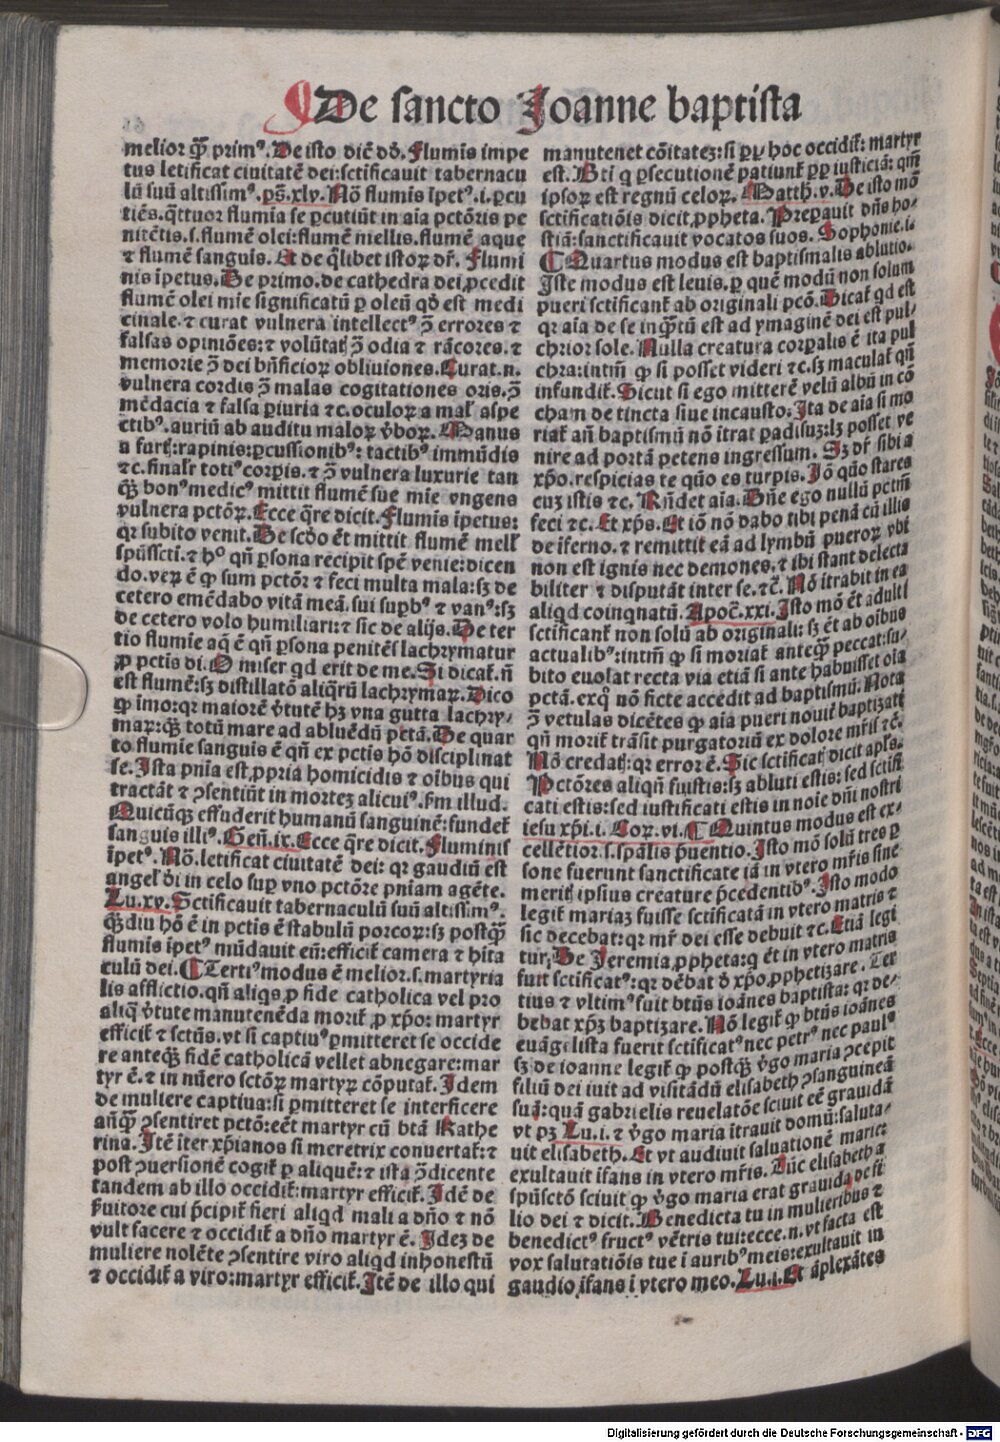 De sancto Joanne baptista
melior q̃ȝ primꝰ. De isto dicĩ dõ. Flumĩs impe
tus letificat ciuitatẽ dei: sctificauit tabernacu
lũ suũ altissimꝰ. ps̃. xlv. Nõ flumis ĩpetꝰ .i. ꝑcu
tiẽs. q̃ttuor flumia se ꝑcutiũt in aia pctõris pe
nitẽtis .s. flumẽ olei: flumẽ mellis. flumẽ aque
⁊ flumẽ sanguis. Et de q̃libet istoꝝ dr̃. Flumi
nis ĩpetus. De primo. de cathedra dei ꝓcedit
flumẽ olei mie significatũ ꝑ oleũ qď est medi
cinale. ⁊ curat vulnera intellectꝰ ꝯ̃ errores ⁊
falsas opiniões: ⁊ volũtatꝭ ꝯ̃ odia ⁊ rãcores. ⁊
memorie ꝯ̃ dei bñficioꝝ obliuiones. Curat .n.
vulnera cordis ꝯ̃ malas cogitationes oris. ꝯ̃
mẽdacia ⁊ falsa ꝑiuria ⁊c. oculoꝝ a mal' aspe
ctibꝰ. auriũ ab auditu maloꝝ v̓boꝝ. Manus
a furtꝭ: rapinis: ꝑcussionibꝰ: tactibꝰ immũdis
⁊c. finalr̃ totiꝰ corꝑis. ⁊ ꝯ̃ vulnera luxurie tan
q̃ȝ bonꝰ medicꝰ mittit flumẽ sue mie vngens
vulnera pctõꝝ. Ecce q̃re dicit. Flumis ĩpetus:
qr subito venit. De scďo ẽt mittit flumẽ mell'
spũssctĩ. ⁊ hꝰ qñ ꝑsona recipit spẽ venie: dicen
do. veꝝ ẽ ꝙ sum pctõr ⁊ feci multa mala: sȝ de
cetero emẽdabo vitã meã. sui supb̓ꝰ ⁊ vanꝰ: sȝ
de cetero volo humiliari: ⁊ sic de alijs. De ter
tio flumie aq̃ ẽ qñ ꝑsona penitẽs lachrymatur
ꝓ pctis di. O miser qd erit de me. Si dicat̃. ñ
est flumẽ: sȝ distillatõ aliq̃rũ lachrymaꝝ. Dico
ꝙ imo: qr maiorẽ v̓tutẽ hȝ vna gutta lachry-
maꝝ: q̃ȝ totũ mare ad abluẽdũ pctã. De quar
to flumie sanguis ẽ qñ ex pctis hõ disciplinat
se. Ista pnia est ꝓpria homicidis ⁊ oĩbus qui
tractãt ⁊ ꝯsentiũt in morteȝ alicuiꝰ. ẽm illud.
Quicũqȝ effuderit humanũ sanguinẽ: fundet̃
sanguis illiꝰ. Geñ. ix. Ecce q̃re dicit. Fluminis
ĩpetꝰ. Nõ. letificat ciuitatẽ dei: qr gaudiũ est
angel' dĩ in celo sup vno pctõre pniam agẽte.
Lu. xv. Sctificauit tabernaculũ suũ altissimꝰ.
q̃ȝdiu hõ ẽ in pctis ẽ stabulũ porcoꝝ: sȝ postq̃ȝ
flumis ĩpetꝰ mũdauit eũ: efficit̃ camera ⁊ hita
culũ dei. ¶ Tertiꝰ modus ẽ melior .s. martyria
lis afflictio. qñ aliqs ꝓ fide catholica vel pro
aliq̃ v̓tute manutenẽda morit̃ ꝓ xp̃o: martyr
efficit̃ ⁊ sctũs. vt si captiuꝰ ꝑmitteret se occide
re anteq̃ȝ fidẽ catholicã vellet abnegare: mar
tyr ẽ. ⁊ in nũero sctõꝝ martyꝝ cõputat̃. Idem
de muliere captiua: si ꝑmitteret se interficere
añq̃ȝ ꝯsentiret pctõ: eẽt martyr cũ btã Kathe
rina. Itẽ ĩter xp̃ianos si meretrix conuertat̃: ⁊
post ꝯuersionẽ cogit̃ ꝑ aliquẽ: ⁊ ista ꝯ̃dicente
tandem ab illo occidit̃: martyr efficit̃. Idẽ de
ẽuitore cui p̃cipit̃ fieri aliqd mali a dño ⁊ nõ
vult facere ⁊ occidit̃ a dño martyr ẽ. Ideȝ de
muliere nolẽte ꝯsentire viro aliqd inhonestũ
⁊ occidit̃ a viro: martyr efficit̃. Itẽ de illo qui
manutenet cõitateȝ: si ꝓp̃ hoc occidit̃: martyr
est. Bti q ꝑsecutionẽ patiunt̃ ꝓp̃ iusticiã: qm̃
ipsoꝝ est regnũ celoꝝ. Matth. v. De isto mõ
sctificatiõis dicit ꝓpheta. Preparauit dñs ho-
stiã: sanctificauit vocatos suos. Sophonie. i.
¶ Quartus modus est baptismalis ablutio.
Iste modus est leuis. ꝑ quẽ modũ non solum
pueri sctificant̃ ab originali pctõ. Dicat̃ qd est
qr aĩa de se inq̃ȝtũ est ad ymaginẽ dei est pul-
chrior sole. Nulla creatura corꝑalis ẽ ita pul
chra: intm̃ ꝙ si posset videri ⁊c. sȝ maculat̃ qñ
infundit̃. Sicut si ego mitterẽ velũ albũ in cõ
cham de tincta siue incausto. Ita de aia si mo
riat̃ añ baptismũ nõ ĩtrat padisuȝ: lȝ posset ve
nire ad portã petens ingressum. Sȝ dr̃ sibi a
xp̃o. respicias te quõ es turpis. Iõ quõ stares
cuȝ istis ⁊c. Rñdet aia. Dñe ego nullũ pctm̃
feci ⁊c. Et xp̃s. Et iõ nõ dabo tibi penã cũ illis
de ĩferno. ⁊ remittit̃ eã ad lymbũ pueroꝝ vbi
non est ignis nec demones. ⁊ ibi stant delecta
biliter ⁊ disputãt inter se. ⁊c̃. Nõ ĩtrabit in ea
aliqd coinqnatũ. Apoc̃. xxi. Isto mõ ẽt adulti
sctificant̃ non solũ ab originali: sȝ ẽt ab oĩbus
actualibꝰ: intm̃ ꝙ si moriat̃ anteq̃ȝ peccat: su-
bito euolat recta via etiã si ante habuisset oĩa
pctã. exq̃ nõ ficte accedit ad baptismũ. Nota
ꝯ̃ vetulas dicẽtes ꝙ aia pueri nouit̃ baptizati
qñ morit̃ trãsit purgatoriũ ex dolore mr̃is ⁊c̃.
Nõ credatꝭ: qr error ẽ. Sic sctificatꝭ dicit apl's.
Pctõres aliqñ fuistis: sȝ abluti estis: sed sctifi
cati estis: sed iustificati estis in noĩe dñi nostri
iesu xp̃i. i. Coꝝ. vi. ¶ Quintus modus est ex-
cellẽtior .s. spãlis p̃uentio. Isto mõ solũ tres ꝑ
sone fuerunt sanctificate iã in vtero mr̃is sine
meritꝭ ipsius creature p̃cedentibꝰ. Isto modo
legit̃ mariaȝ fuisse sctificatã in vtero matris ⁊
sic decebat: qr mr̃ dei esse debuit ⁊c. Etiã legi
tur, De Jeremia ꝓpheta: q ẽt in vtero matris
fuit sctificatꝰ: qr dẽbat ď xp̃o ꝓphetizare. Ter
tius ⁊ vltimꝰ fuit btũs ioãnes baptista: qr de-
bebat xp̃ȝ baptizare. Nõ legit̃ ꝙ btũs ioãnes
euãgelista fuerit sctificatꝰ nec petrꝰ nec paulꝰ
sȝ de ioanne legit̃ ꝙ postq̃ȝ v̓go maria ꝯcepit
filiũ dei iuit ad visitãdũ elisabeth ꝯsanguineã
suã: quã gabrielis reuelatõe sciuit eẽ grauidã
vt pȝ Lu. i. ⁊ v̓go maria ĩtrauit domũ: saluta-
uit elisabeth. Et vt audiuit saluationẽ marie:
exultauit ĩfans in vtero mr̃is. Tũc elisabeth a
spũsctõ sciuit ꝙ v̓go maria erat grauida de fi
lio dei ⁊ dicit. Benedicta tu in mulieribus ⁊
benedictꝰ fructꝰ vẽtris tui: ecce .n. vt facta est
vox salutatiõis tue ĩ auribꝰ meis: exultauit in
gaudio ĩfans ĩ vtero meo. Lu. i. Et ãplexãtes
Digitalisierung gefördert durch die Deutsche Forschungsgemeinschaft - DFG